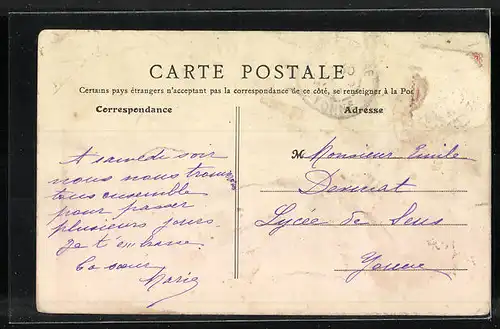 CARTE POSTALE
Certains pays étrangers n'acceptant pas la correspondance de ce côté, se renseigner à la Pos
Correspondance
Adresse
A samedi soir
nous nous trouverons
tous ensemble
pour passer
plusieurs jours.
Je t'embrasse
Ta sœur
Marie
M Monsieur Emile
Lycée de Sens
Yonne